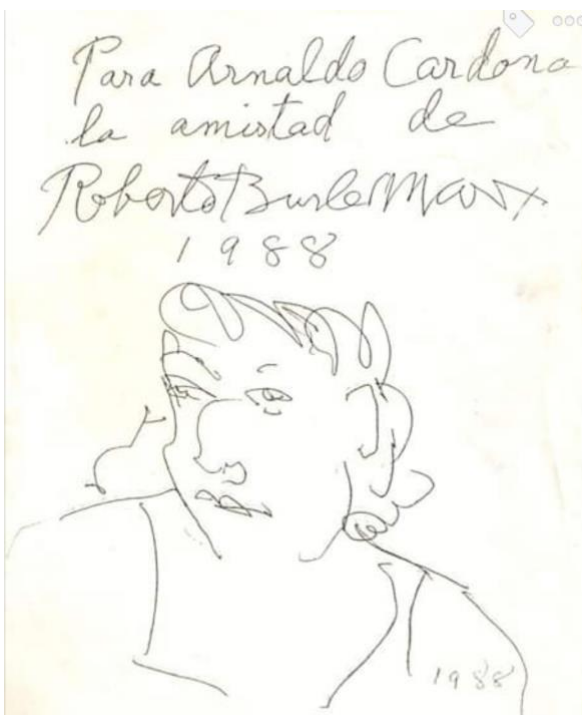 Para Arnaldo Cardona
la amistad de
Roberto Burle Marx
1988
1988